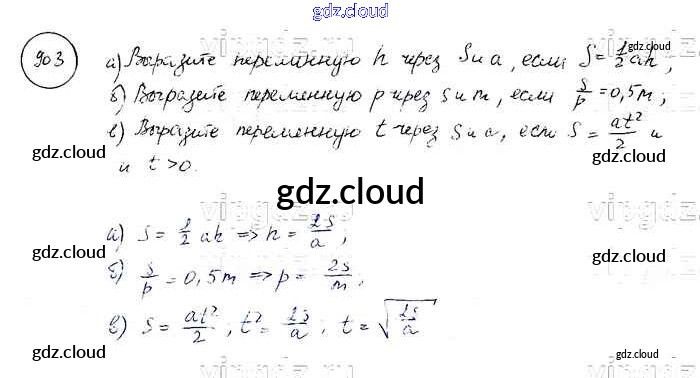 gdz.cloud
903
а) Выразите переменную h через S и a, если S = 1/2 ah;
б) Выразите переменную p через s и m, если s/p = 0,5m;
в) Выразите переменную t через S и a, если s = at²/2 и
и t > 0.
gdz.cloud
gdz.cloud
gdz.cloud
gdz.cloud
gdz.cloud
а) s = 1/2 ah => h = 2s/a;
б) s/p = 0,5m => p = 2s/m;
в) s = at²/2; t² = 2s/a; t = √2s/a
gdz.cloud
gdz.cloud
gdz.cloud
gdz.cloud